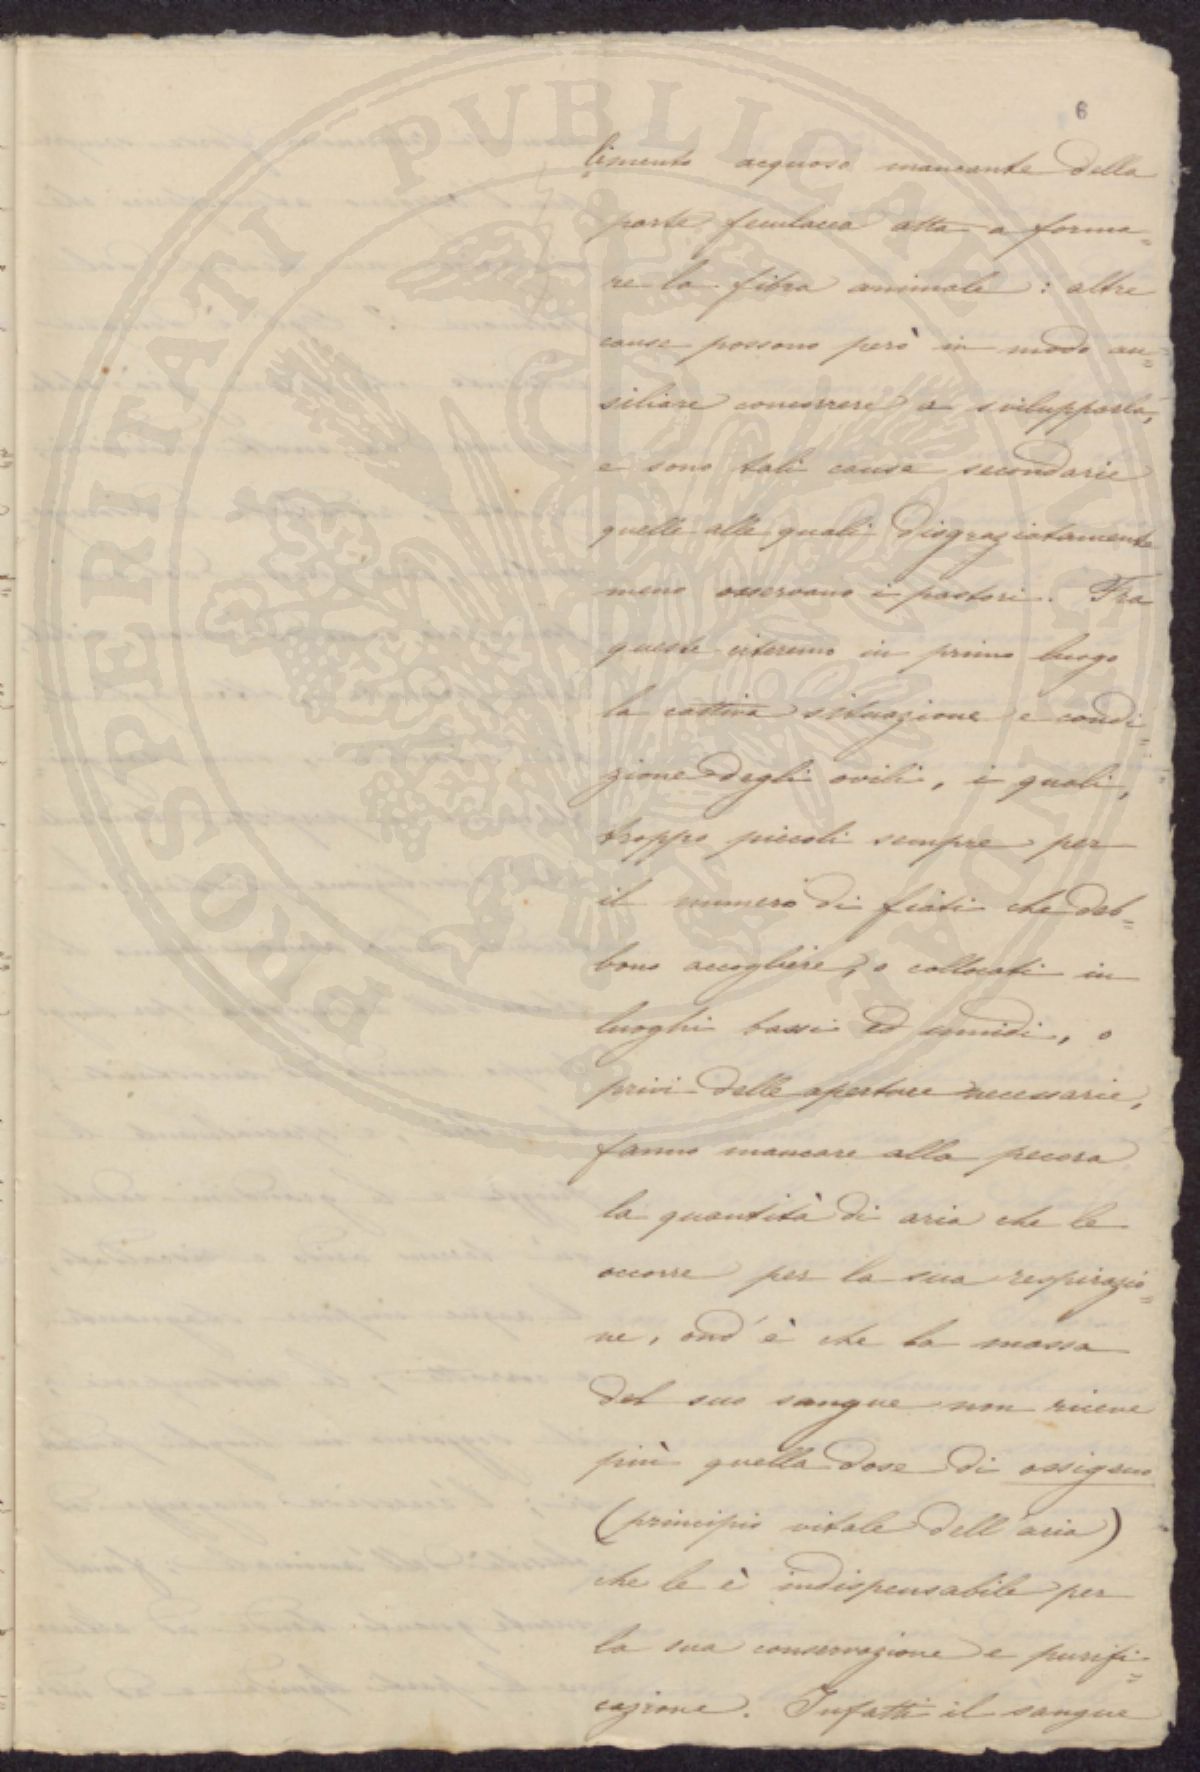 6
limento acquoso mancante della
parte feculacea atta a forma=
re la fibra animale : altre
cause possono però in modo au=
siliare concorrere a svilupparla,
e sono tali cause secondarie
quelle alle quali disgraziatamente
meno osservano i pastori. Fra
queste citeremo in primo luogo
la cattiva situazione e condi=
zione degli ovili, i quali,
troppo piccoli sempre per
il numero di fiati che deb=
bono accogliere, o collocati in
luoghi bassi ed umidi, o
privi delle aperture necessarie,
fanno mancare alla pecora
la quantità di aria che le
occorre per la sua respirazio=
ne, ond'è che la massa
del suo sangue non riceve
più quella dose di ossigeno
(principio vitale dell'aria)
che le è indispensabile per
la sua conservazione e purifi=
cazione. Infatti il sangue
PROSPERITATI PUBLICAE AUGENDAE